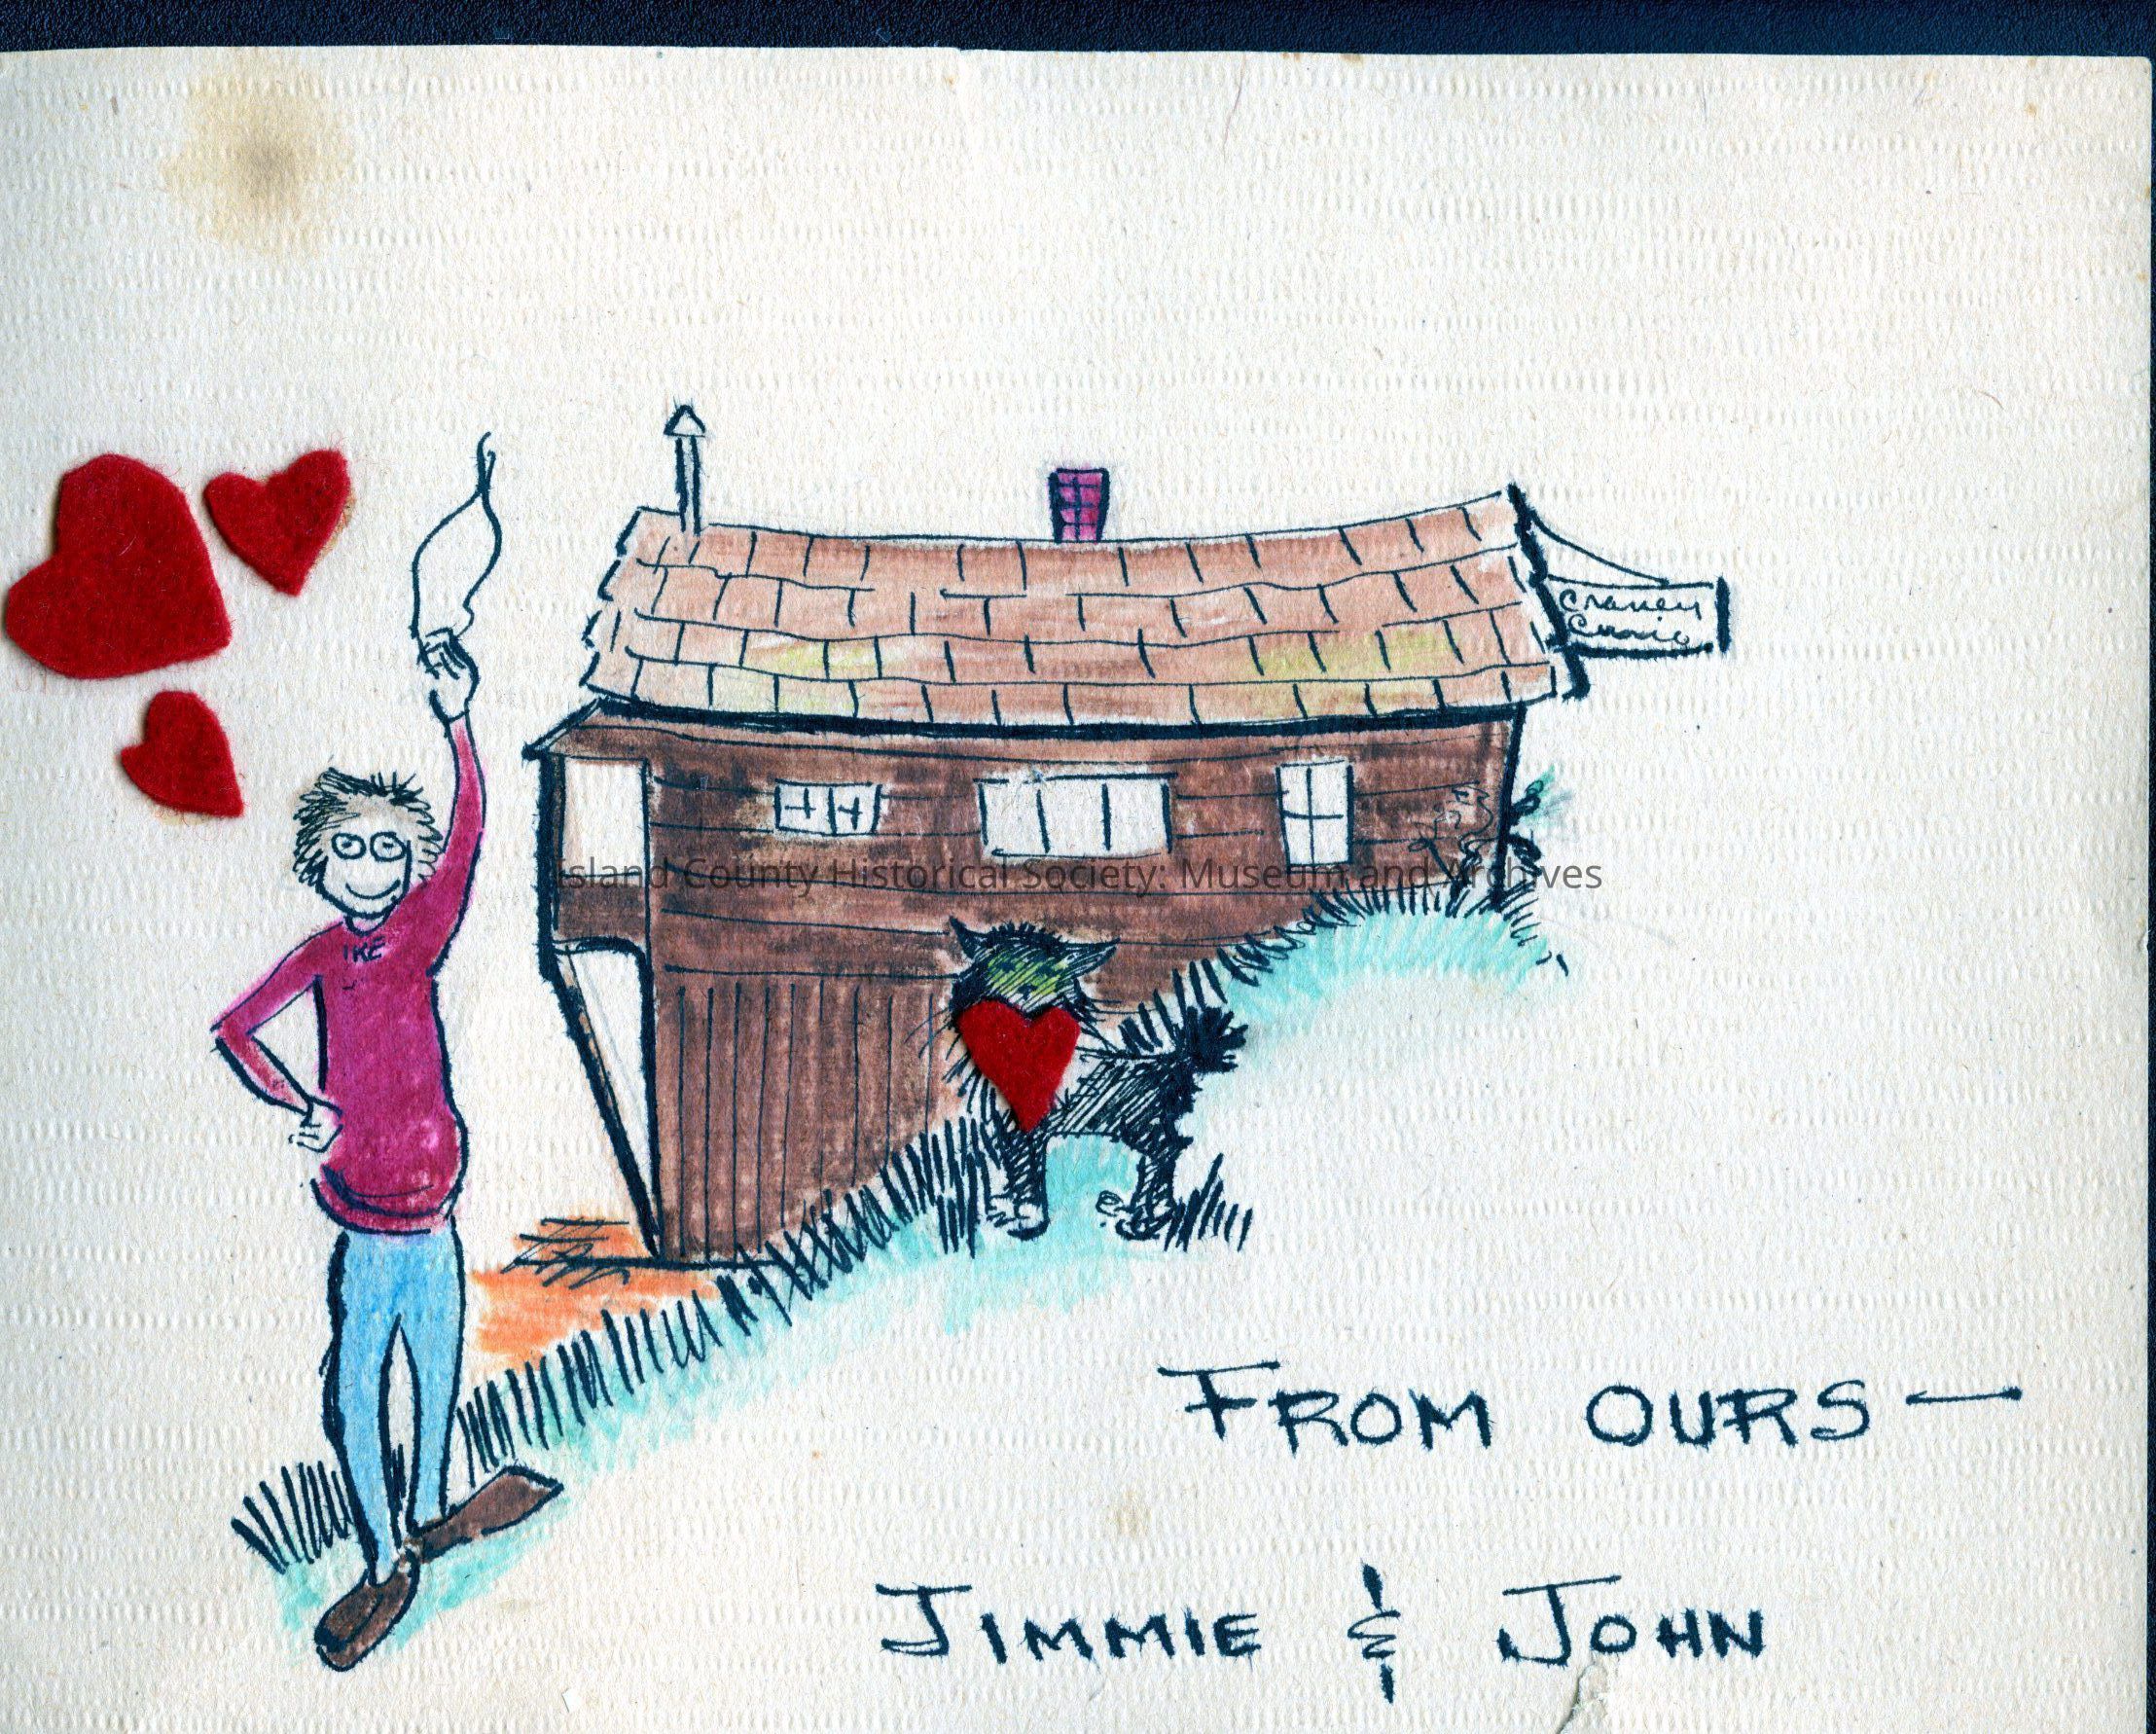 Island County Historical Society: Museum and Archives
IKE
FROM OURS—
JIMMIE & JOHN